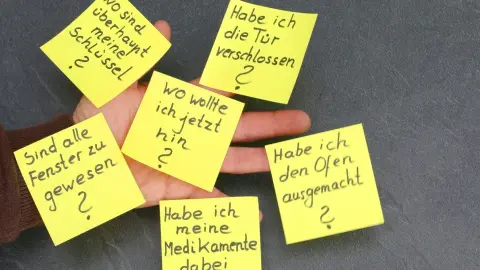 wo sind
überhaupt
meine
Schlüssel
?
Habe ich
die Tür
verschlossen
?
wo wollte
ich jetzt
hin
?
Sind alle
Fenster zu
gewesen
?
Habe ich
den Ofen
ausgemacht
?
Habe ich
meine
Medikamente
dabei